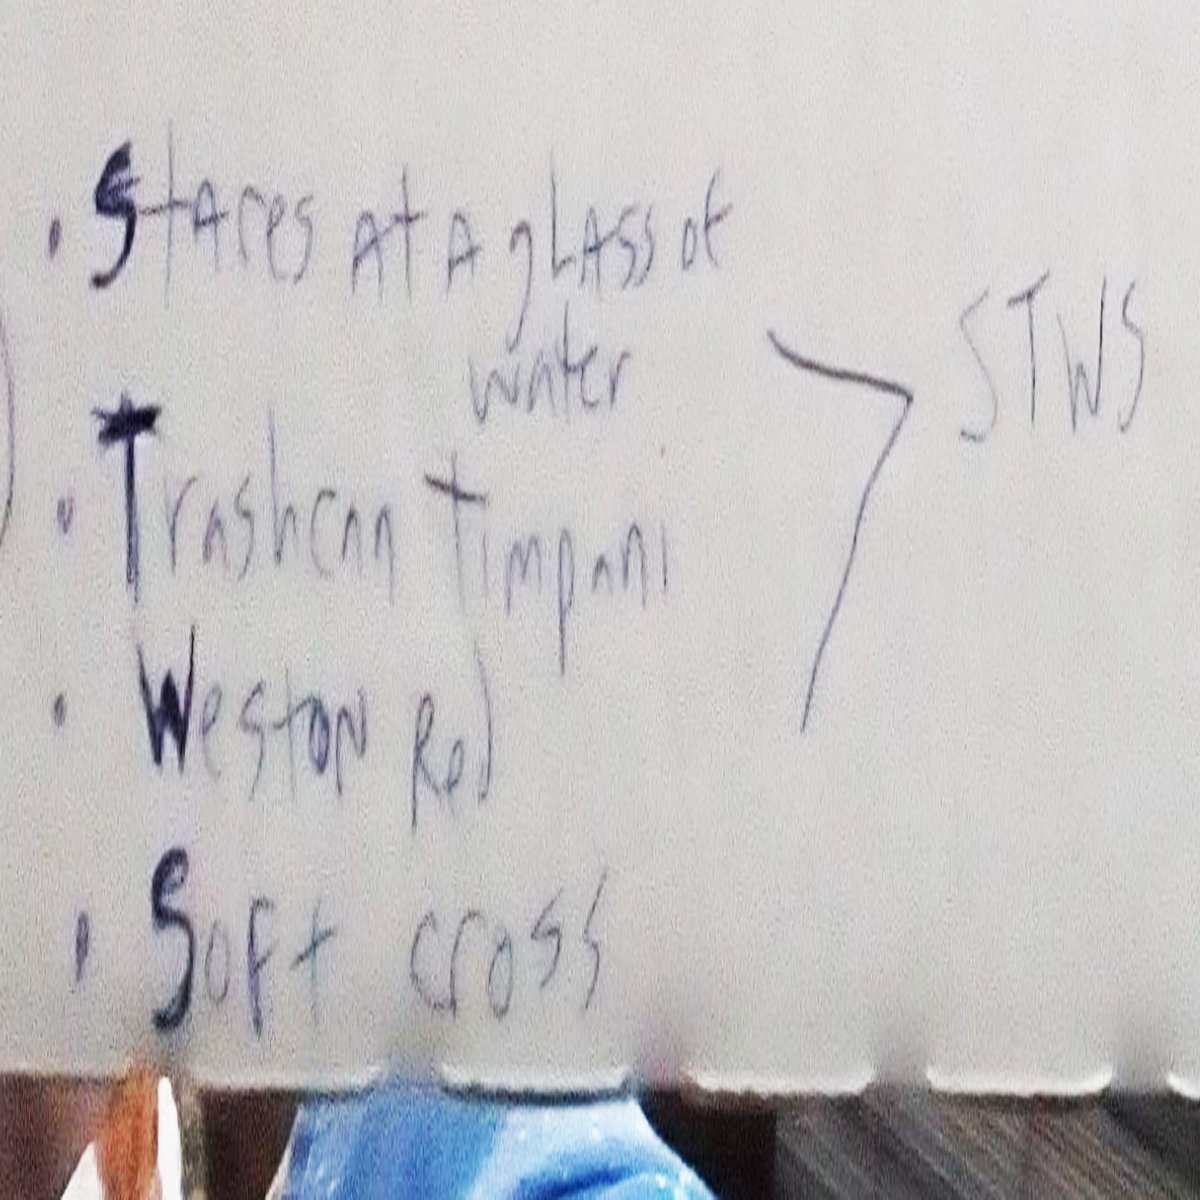 • Stares at a glass of
water
STWS
• Trashcan Timpani
• Weston Rod
• Soft cross